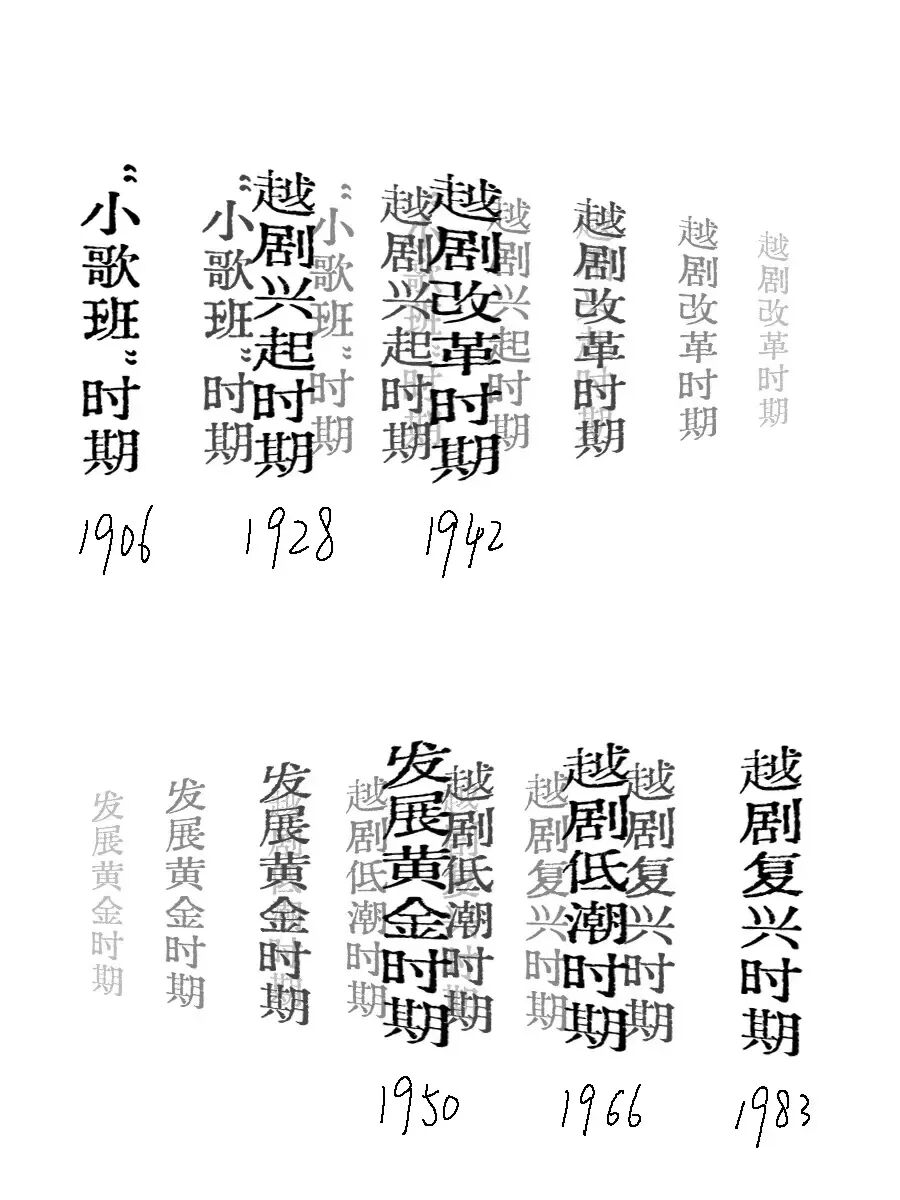 “小歌班”时期
“小歌班”时期
越剧兴起时期
“小歌班”时期
越剧兴起时期
越剧改革时期
越剧兴起时期
越剧改革时期
越剧改革时期
越剧改革时期
1906
1928
1942
发展黄金时期
发展黄金时期
发展黄金时期
越剧低潮时期
发展黄金时期
越剧低潮时期
越剧复兴时期
越剧低潮时期
越剧复兴时期
越剧复兴时期
1950
1966
1983